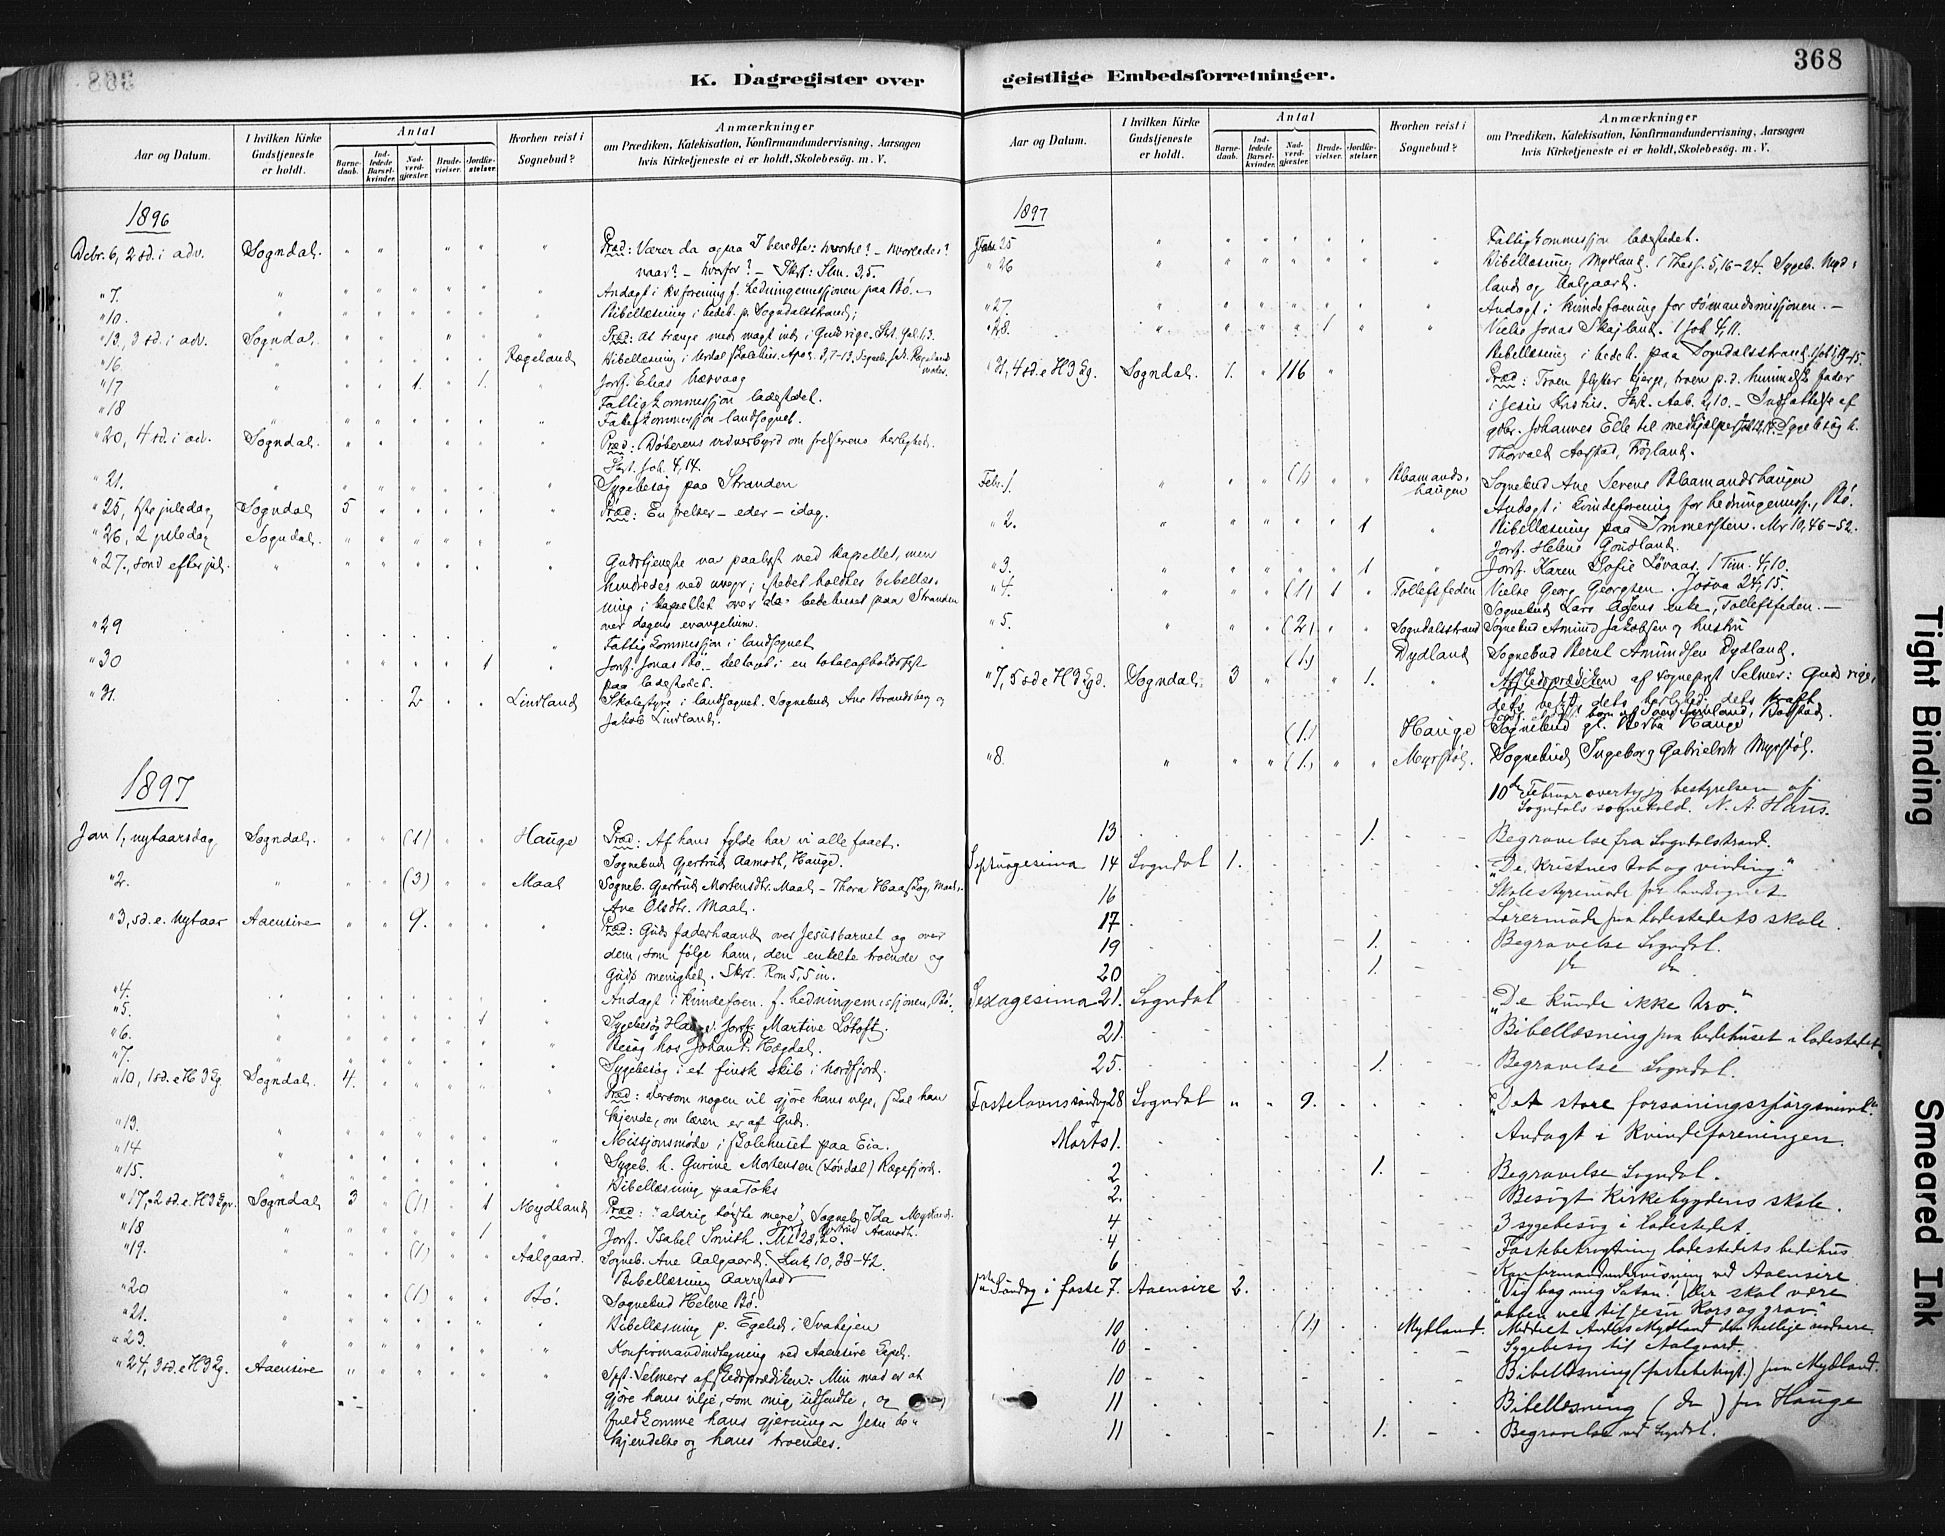 368
K. Dagregister over geistlige Embedsforretninger.
Aar og Datum. I hvilken Kirke Gudstjeneste er holdt. Antal Barnedaab. Indledede Barselkvinder. Nadverdgjæster. Brudevielser. Jordfæstelser. Hvorhen reist i Sognebud? Anmærkninger om Prædiken, Katekisation, Konfirmandundervisning, Aarsagen hvis Kirketjeneste ei er holdt, Skolebesøg. m. V.
1896
Debr. 6, 2 sd. i adv. Sogndal. Præd: Værer da ogsaa I beredte: hvorhe? – hvorledes?
naar? – hvorfor? –
" 7. Andagt i kv.forening f. hedningemissjonen paa Bö. –
" 10. Bibellæsning i bedeh. p. Sogndalsstrand;
" 13, 3 sd. i adv. Sogndal. Præd: At trænge med magt ind i Guds rige.
" 16. Rægeland Bibellæsning i
" 17 1. 1. Jordf. Elias
" 18 Fattigkommissjon ladestedet.
Fattigkommissjon landsognet.
" 20, 4 sd. i adv. Sogndal. Præd: Døberens vidnesbyrd om frelserens herlighed.
Skrt. Joh. 4,14.
" 21. Sygebesøg paa Stranden
" 25, 1ste juledag Sogndal 5 Præd: En frelser – eder – idag.
" 26, 2 juledag Sogndal.
" 27., sønd efter jul. Gudstjeneste var paalyst ved kapellet, men
hindredes ved uveir; istedet holdtes bibellæs-
ning i bedehuset paa Stranden
over dagens evangelium.
" 29 Fattigkommissjon i landsognet
" 30 1 Jordf. Jonas Bö. – deltaget i en totalafholdsfest
paa ladestedet.
" 31. 2 Lindland Skolestyre i landsognet. Sognebud Ane Strandsberg og
Jakob Lindland.
1897
Jan 1, nytaarsdag Sogndal. (1) Hauge Præd: Af hans fylde har vi alle faaet.
Sognebud Gjertrud Aamodt, Hauge.
" 2. (3) Maal Sogneb. Gjertrud Mortensdtr. Maal – Thora
Ane Olsdtr. Maal.
" 3, sd. e. nytaar Aaensire 9. Præd: Guds faderhaand over Jesusbarnet og over
dem, som følge ham, den enkelte troende og
Guds menighed. Skrt. Rom 5,5 in.
" 4. Andagt i kvindeforen. f. hedningemissjonen, Bö.
" 5. 1 Sygebesøg Jordf. Martine Lötoft.
" 6. Besøg hos Johan P. Hægdal.
" 7. Sygebesøg i et finsk skib i nordfjord.
" 10, 1 sd. e H 3 Kg. Sogndal. 4. Præd: dersom nogen vil gjøre hans vilje, skal han
kjende, om læren er af Gud.
" 13. Missjonsmøde i skolehuset paa Eia.
" 14 Sygeb. h. Gurine Mortensen (Løvdal) Rægefjord.
" 15. Bibellæsning paa Toks
" 17, 2 sd. e H 3 Kgr. Sogndal 3 (1) 1 Mydland Præd: "aldrig tørste mere", Sogneb. Ida Mydland.
" 18 1 Jordf. Isabel Smith. Mt 28,20.
" 19. (1) Aalgaard. Sogneb. Ane Aalgaard. Luk 10,38-42.
Bibellæsning Aarrestad
" 20 (1) Bö. Sognebud Helene Bö.
" 21. Bibellæsning p. Egelid i Svaheien
" 23. Konfirmandindtegning ved Aaensire
" 24, 3 sd. e H 3 Kg. Aaensire Spr. Selmers afskedsprædiken: Min mad er at
gjøre hans vilje, som mig udsendte, og
fuldkomme hans gjerning – Jesu be-
kjendelse og hans troendes.
1897
Jan 25 Fattigkommissjon ladestedet.
" 26 Bibellæsning Mydland. 1 Thess. 5,16-24. Sygeb. Myd-
land og Aalgaard.
" 27. Andagt i kvindeforening for sømandsmissjonen. –
" 28. 1 Viels Jonas Skajland. 1 Joh 4,11.
Bibellæsning i bedeh. paa Sogndalsstrand.
" 31, 4 sd. e H 3 Kg. Sogndal. 1. 116 Præd: Troen flytter bjerge, troen p. d. himmelske fader
i Jesus Kristus. Skrt. Aab. 2,10. – Indsættelse af
gdbr. Johannes Elle til medhjælper. Sygebesøg h.
Thorvald Aarstad, Frøiland.
Febr. 1. (1) Blaamandshaugen Sognebud Ane Serene Blaamandshaugen
Andagt i kvindeforening for hedningemiss., Bö.
" 2. 1 Bibellæsning paa Immersten. Mr 10,46-52.
Jordf. Helene Goudland.
" 3. 1 Jordf. Karen Sofie Løvaas. 1 Tim. 4,10.
" 4. (1) 1 Tollefsfeden Vielse Georg Georgsen. Josva 24,15.
Sognebud Lars Agens enke, Tollefsfeden. –
" 5. (2) Sogndalsstrand Sognebud Amund Jakobsen og hustru
(1.) Dydland Sognebud Berul Amundsen Dydland.
" 7, 5 sd e H 3 Kgd. Sogndal. 3 1. Afskedsprædiken af sogneprest Selmer: Guds rige,
dets vext, dets herlighed, dets kraft.
(1.) Hauge Sognebud gl. Berta Hauge
" 8. (1.) Myrstøl. Sognebud Ingeborg Gabrielsdtr Myrstøl.
10de Februar overtog jeg bestyrelsen af
Sogndals sognekald. N. A. Huus.
13 1. Begravelse fra Sogndalstrand.
Septuagesima 14 Sogndal 1. "De kristnes tab og vinding."
16 Skolestyremøde for landsognet
17 Lærermøde paa ladestedets skole.
19 1. Begravelse Sogndal.
20 1. do do
Sexagesima 21. Sogndal "De kunde ikke tro."
21. Bibellæsning paa bedehuset i ladestedet
25. 1. Begravelse Sogndal.
Fastelavns søndag 28 Sogndal 9. "Det store forsoningsspørgsmaal."
Marts 1. Andagt i kvindeforeningen.
2 1. Begravelse Sogndal.
2. Besøgt Kirkebygdens skole.
4 3 sygebesøg i ladestedet.
4 Fastebetragtning ladestedets bedehus
6 Konfirmandundervisning ved Aaensire
1ste Søndag i faste 7. Aaensire 2. "Vig bag mig Satan! Der skal være
aaben vei til Jesu Kors og grav."
10 (1) Mydland. Meddelt Anders Mydland den hellige nadvere.
10 Sygebesøg til Aalgaard.
10 Bibellæsning (fastebetragt.) paa Mydland.
11 Bibellæsning (do) paa Hauge
11 1. Begravelse ved Sogndal.
Tight Binding
Smeared Ink